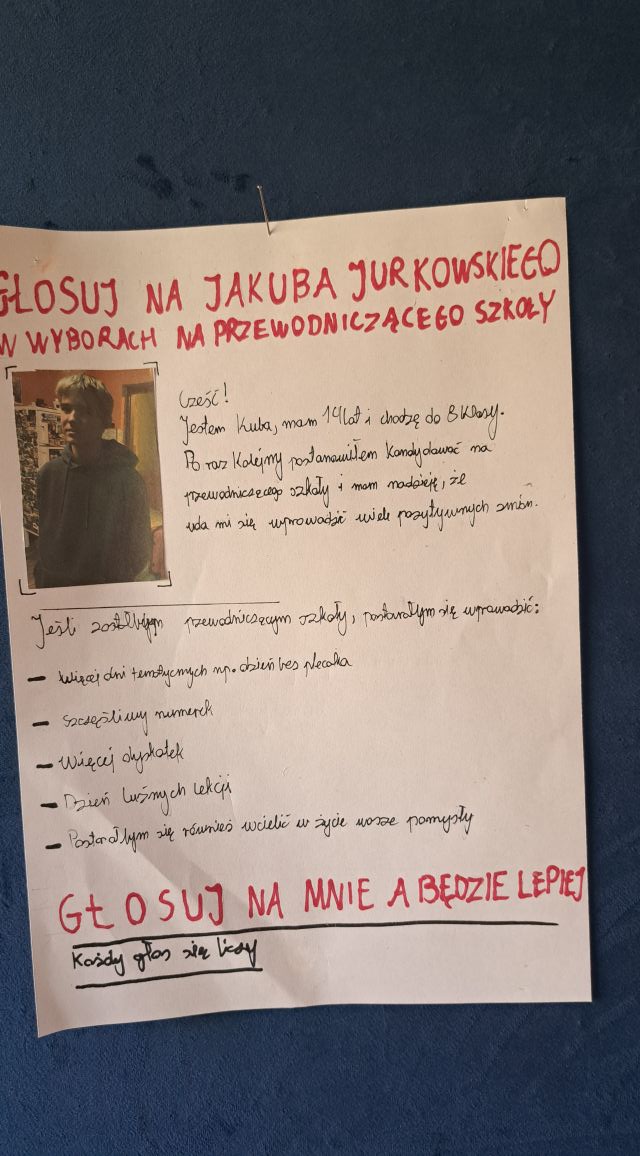 GŁOSUJ NA JAKUBA JURKOWSKIEGO
W WYBORACH NA PRZEWODNICZĄCEGO SZKOŁY
Cześć!
Jestem Kuba, mam 14 lat i chodzę do 8 klasy.
Po raz kolejny postanowiłem kandydować na
przewodniczącego szkoły i mam nadzieję, że
uda mi się wprowadzić wiele pozytywnych zmian.
Jeśli zostałbym przewodniczącym szkoły, postarałbym się wprowadzić:
- Więcej dni tematycznych np. dzień bez plecaka
- Szczęśliwy numerek
- Więcej dyskotek
- Dzień luźnych lekcji
- Postarałbym się również wcielić w życie wasze pomysły
GŁOSUJ NA MNIE A BĘDZIE LEPIEJ
Każdy głos się liczy